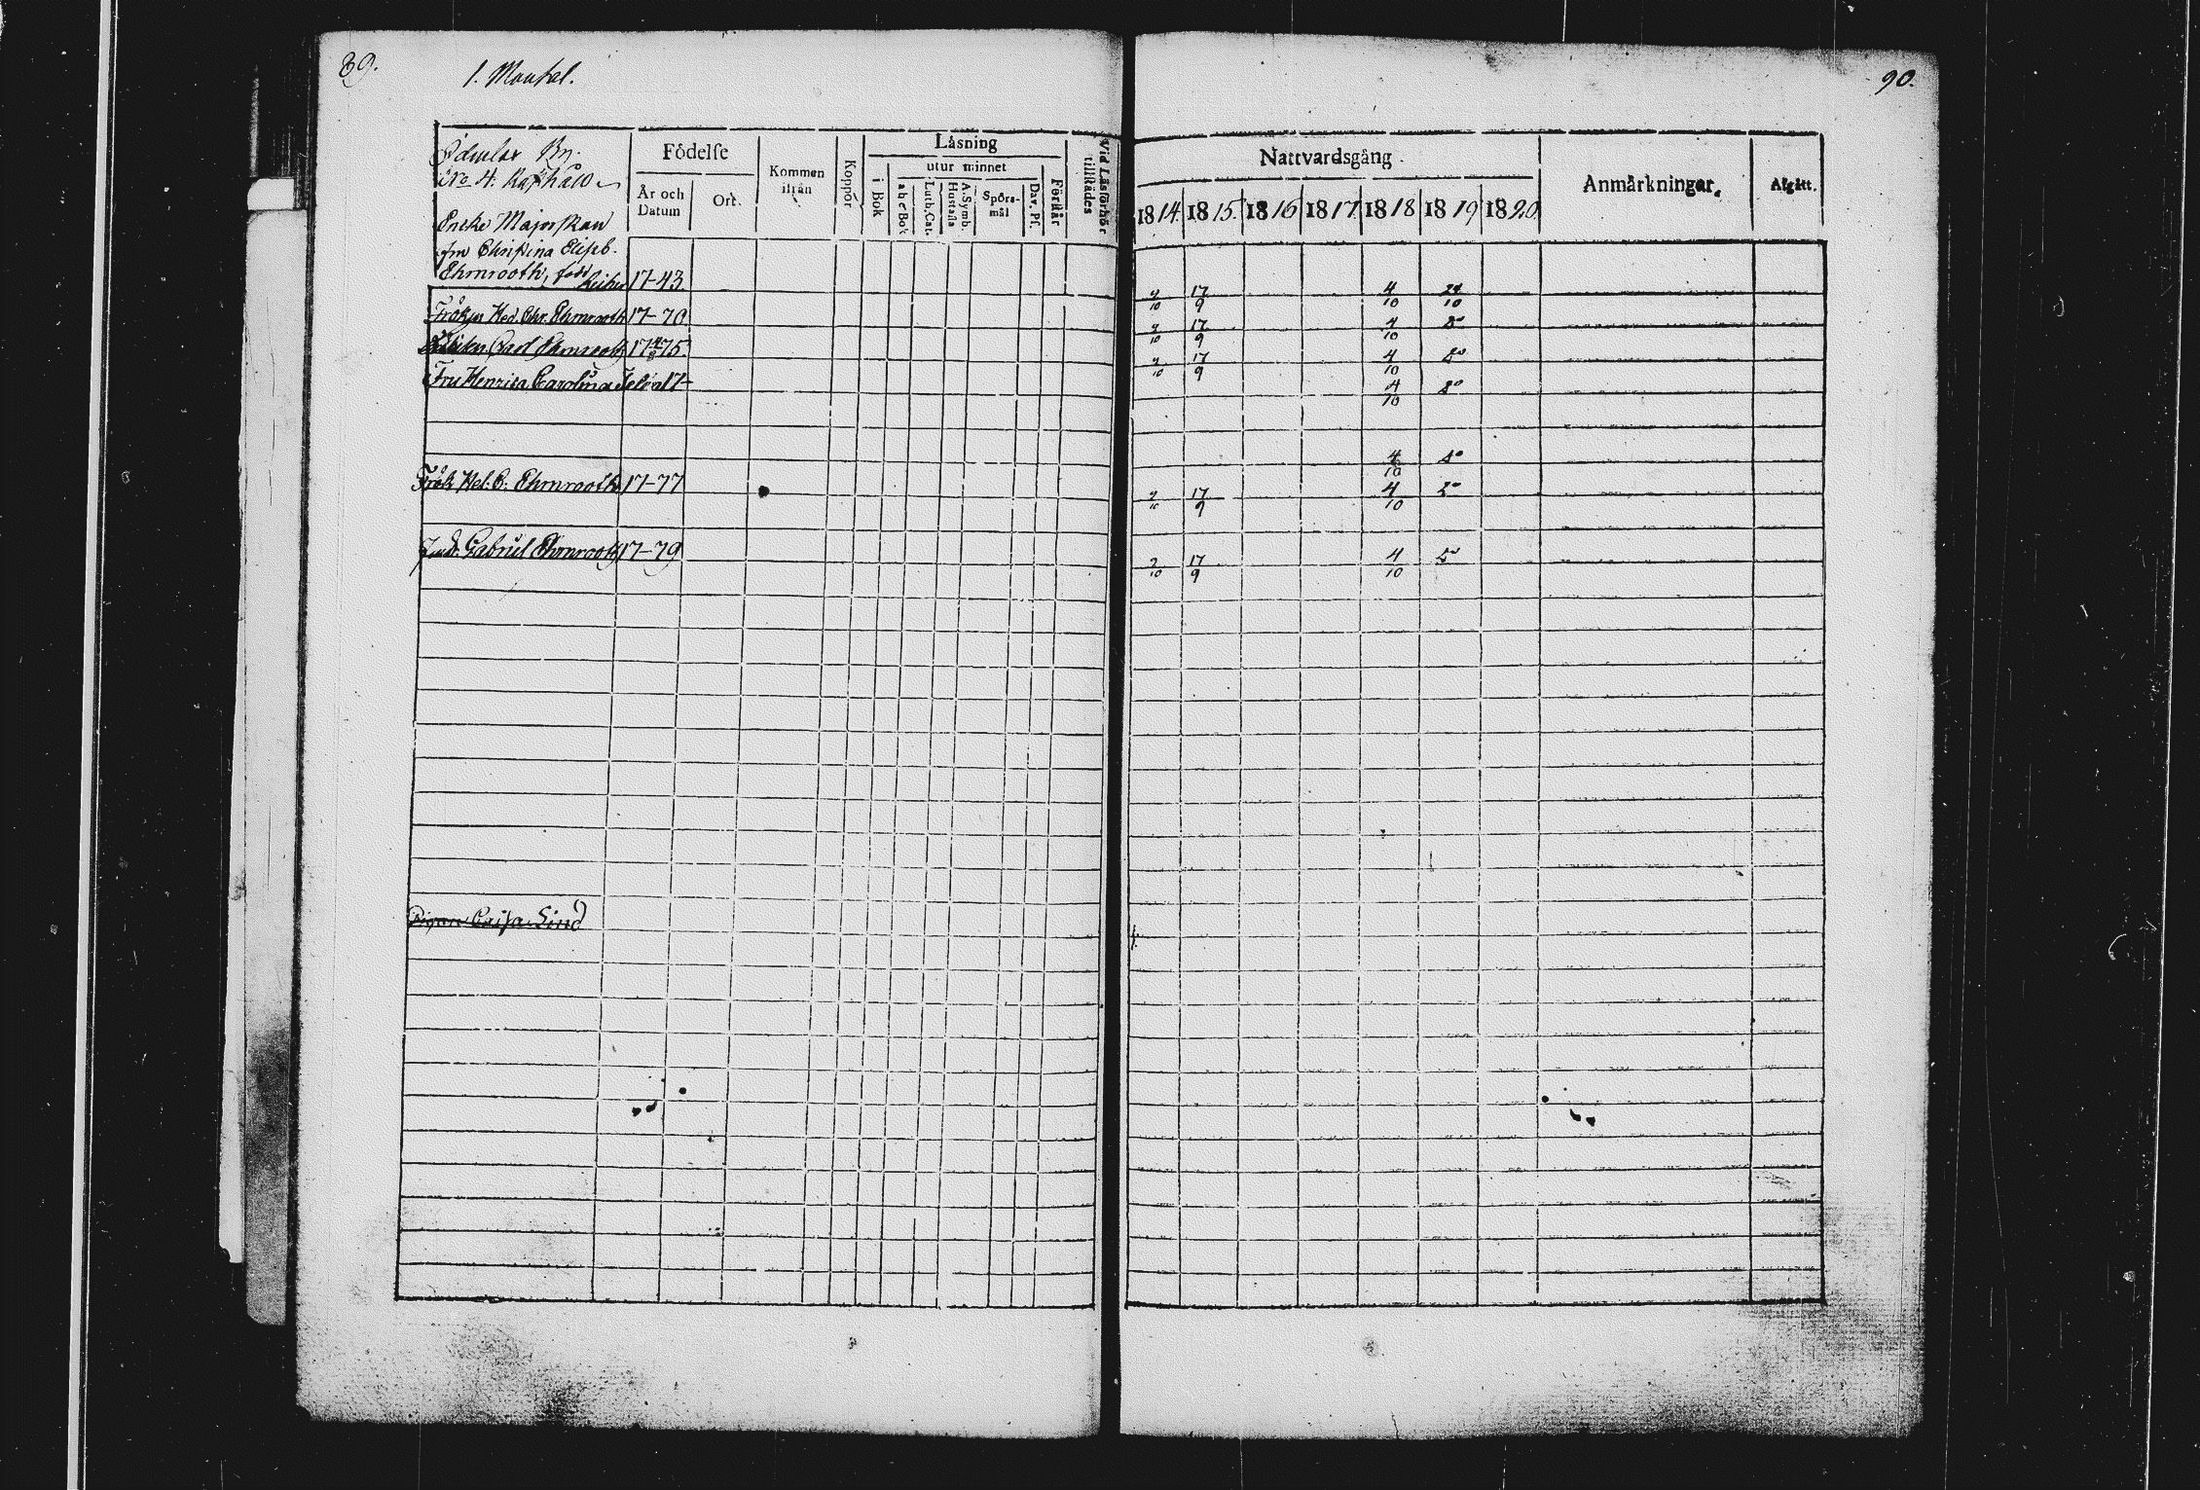 89.
1. Mantal.
90.
By.
No 4.
Födelse
År och Datum
Ort.
Kommen ifrån
Koppor
Läsning
i Bok
utur minnet
a b c Bok
Luth. Cat.
A. Symb. Hustafla
Spörsmål
Dav. Ps.
Förstår
Vid Läsförhör tillstädes
Nattvardsgång.
1814. 1815. 1816 1817 1818 1819 1820
Anmärkningar.
Afgått.
Encke Majorskan
fru Christina Elisab.
Ehrnrooth, född 17-43.
9/10 17/9 4/10 24/10
Fröken Hed. Chr. Ehrnrooth 17-70
9/10 17/9 4/10 do
Carl Ehrnrooth 17 75.
9/10 17/9 4/10 do
Fru Henrica Carolina 17-
4/10 do
4/10 do
Frök Hel. C. Ehrnrooth 17-77
9/10 17/9 4/10 do
Gabriel Ehrnrooth 17-79
9/10 17/9 4/10 do
Pigan Caisa Lind